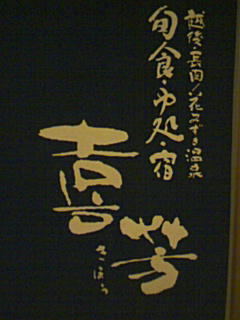 越後・長岡/花みずき温泉
旬食・ゆ処・宿
喜芳
きほう